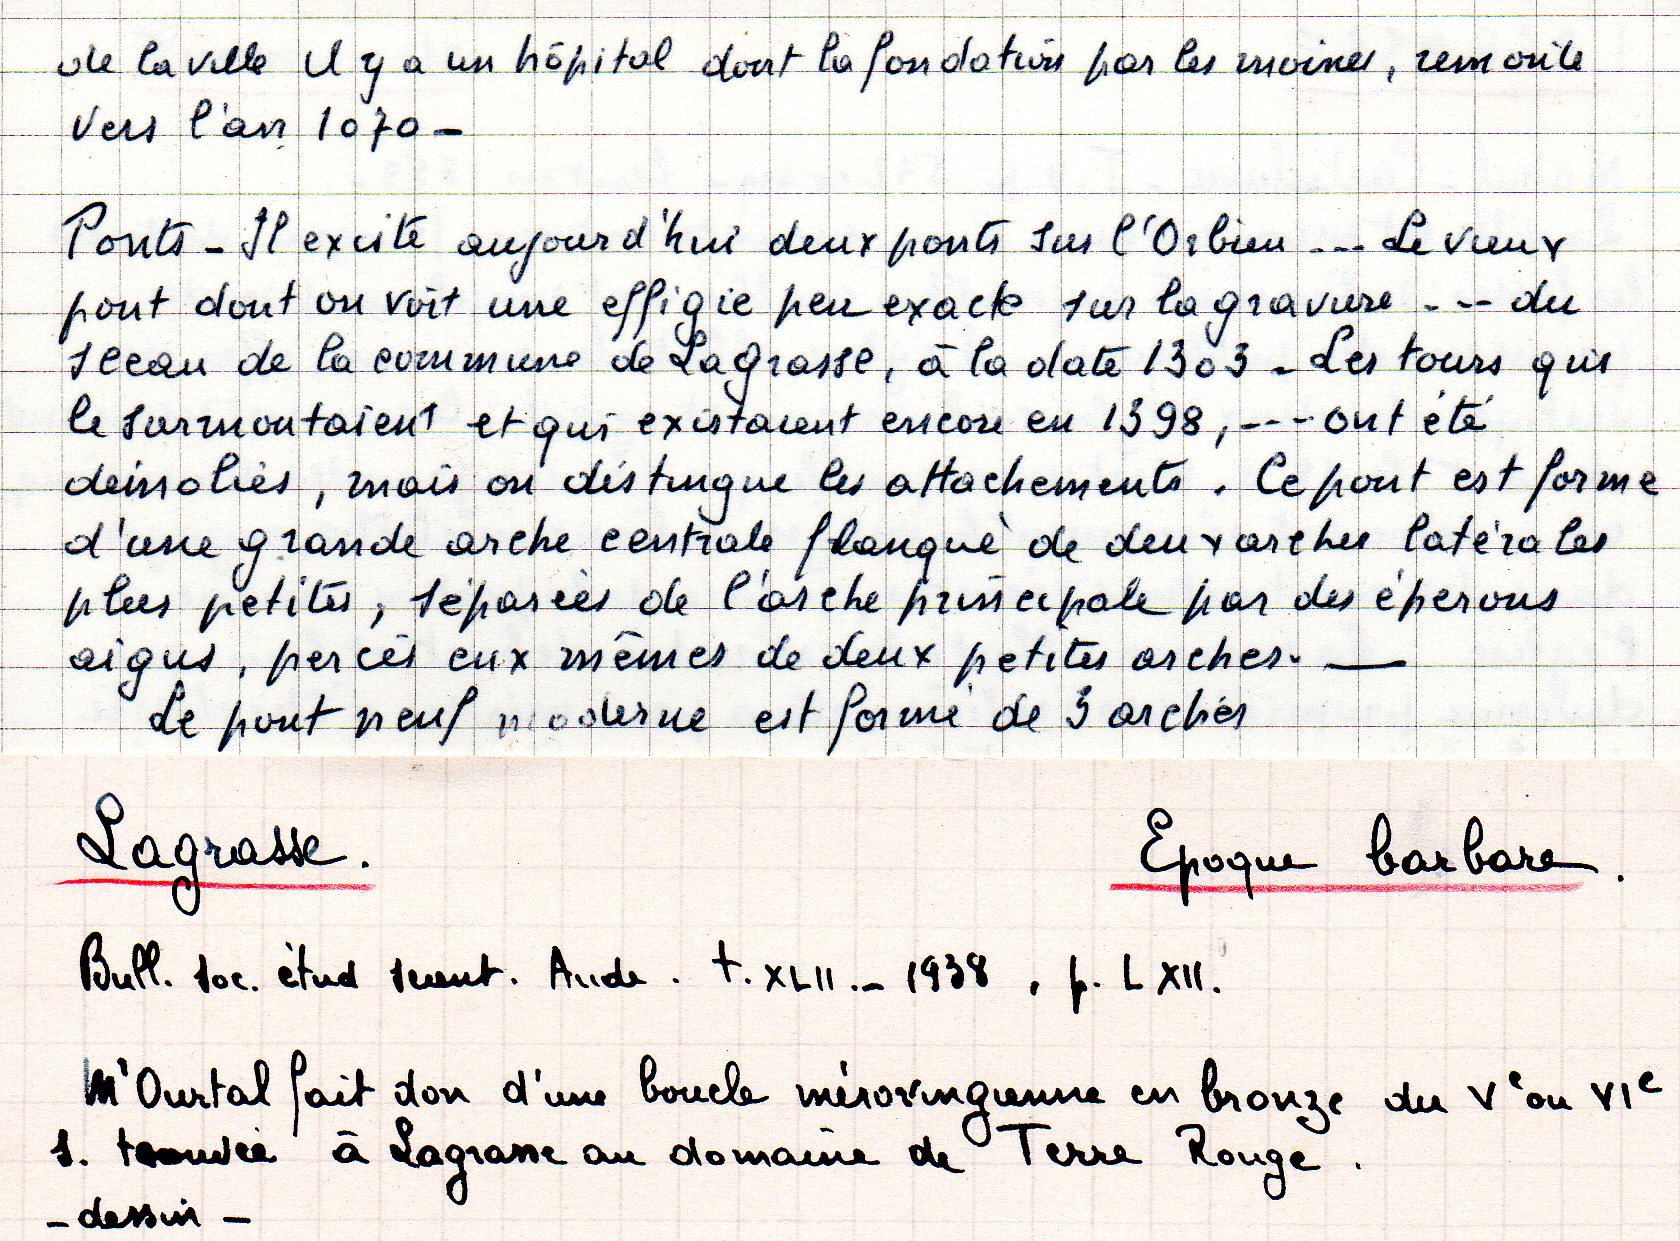 de la ville il y a un hôpital dont la fondation par les moines, remonte
vers l'an 1070 -
Ponts - Il existe aujourd'hui deux ponts sur l'Orbieu --- Le vieux
pont dont on voit une effigie peu exacte sur la gravure --- du
sceau de la commune de Lagrasse, à la date 1303 - Les tours qui
le surmontaient et qui existaient encore en 1398, --- ont été
démolies, mais on distingue les attachements. Ce pont est formé
d'une grande arche centrale flanqué de deux arches latérales
plus petites, séparées de l'arche principale par des éperons
aigus, percés eux mêmes de deux petites arches. —
Le pont neuf moderne est formé de 3 arches
Lagrasse.
Epoque barbare.
Bull. soc. étud scient. Aude. t. XLII. - 1938, p. LXII.
Mr Ourtal fait don d'une boucle mérovingienne en bronze du Ve ou VIe
s. trouvée à Lagrasse au domaine de Terre Rouge.
- dessin -